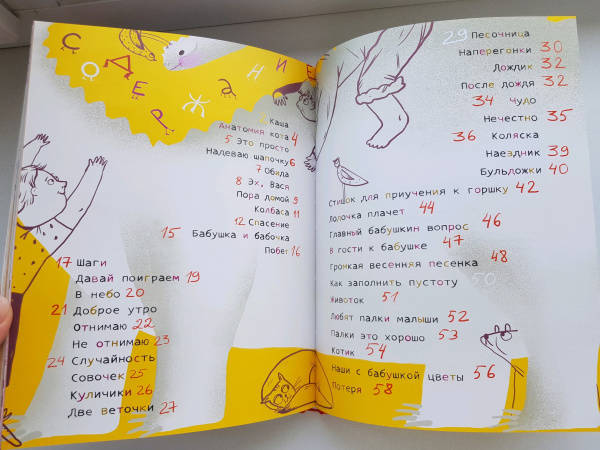 СОДЕРЖАНИЕ
Каша
Анатомия кота 4
5 Это просто
Надеваю шапочку 6
7 Обида
8 Эх, Вася
Пора домой 9
Колбаса 11
12 Спасение
15 Бабушка и бабочка
Побег 16
17 Шаги
Давай поиграем 19
В небо 20
21 Доброе утро
Отнимаю 22
Не отнимаю 23
24 Случайность
Совочек 25
Куличики 26
Две веточки 27
29 Песочница
Наперегонки 30
Дождик 32
После дождя 32
34 Чудо
Нечестно 35
36 Коляска
Наездник 39
Бульдожки 40
Стишок для приучения к горшку 42
Лодочка плачет 44
Главный бабушкин вопрос 46
В гости к бабушке 47
Громкая весенняя песенка 48
Как заполнить пустоту 50
Животок 51
Любят палки малыши 52
Палки это хорошо 53
Котик 54
Наши с бабушкой цветы 56
Потеря 58